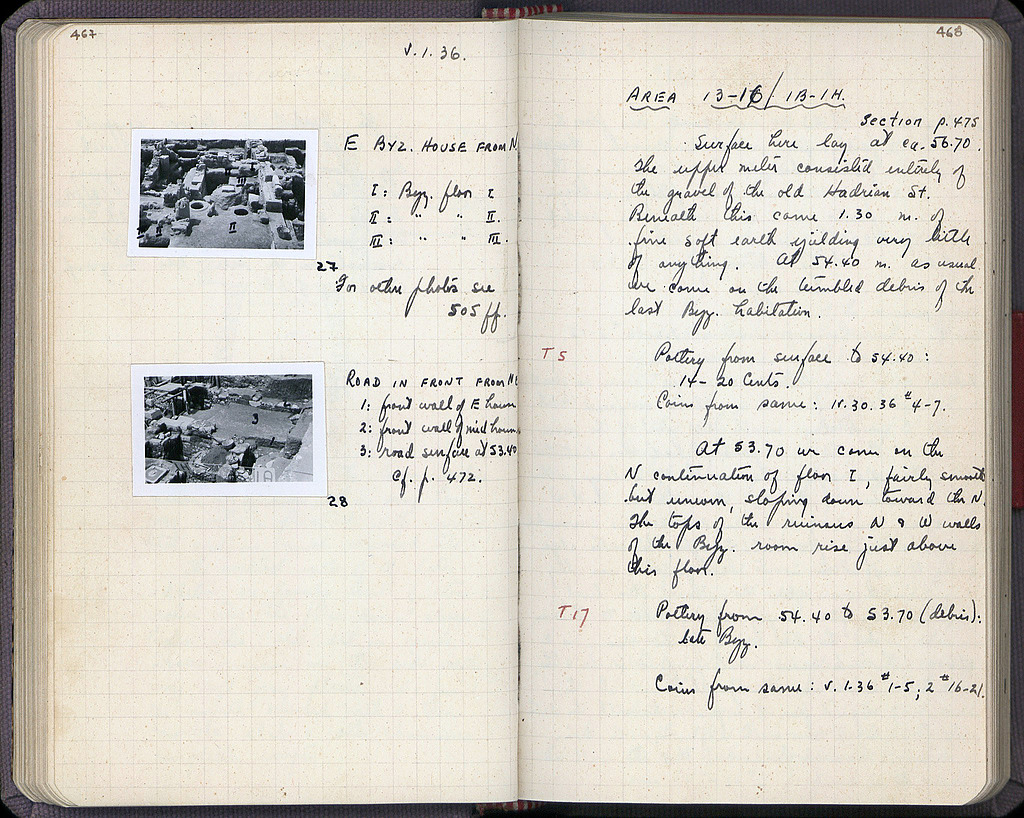 467
V.1.36.
E BYZ. HOUSE FROM N
I: Byz. floor I
II: " " II.
III: " " III.
27
For other photos see
505 ff.
ROAD IN FRONT FROM N
1: front wall of E house
2: front wall of mid house
3: road surface at 53.40
Cf. p. 472.
28
468
AREA 13-16/1B-1H.
Section p. 475
Surface here lay at ca. 56.70.
The upper meter consisted entirely of
the gravel of the old Hadrian St.
Beneath this came 1.30 m. of
fine soft earth yielding very little
of anything. At 54.40 m. as usual
we come on the tumbled debris of the
last Byz. habitation.
T 5
Pottery from surface to 54.40:
14-20 Cents.
Coins from same: IV.30.36 #4-7.
At 53.70 we come on the
N continuation of floor I, fairly smooth
but uneven, sloping down toward the N.
The tops of the ruinous N & W walls
of the Byz. room rise just above
this floor.
T 17
Pottery from 54.40 to 53.70 (debris):
late Byz.
Coins from same: V.1.36 #1-5; 2 #16-21.